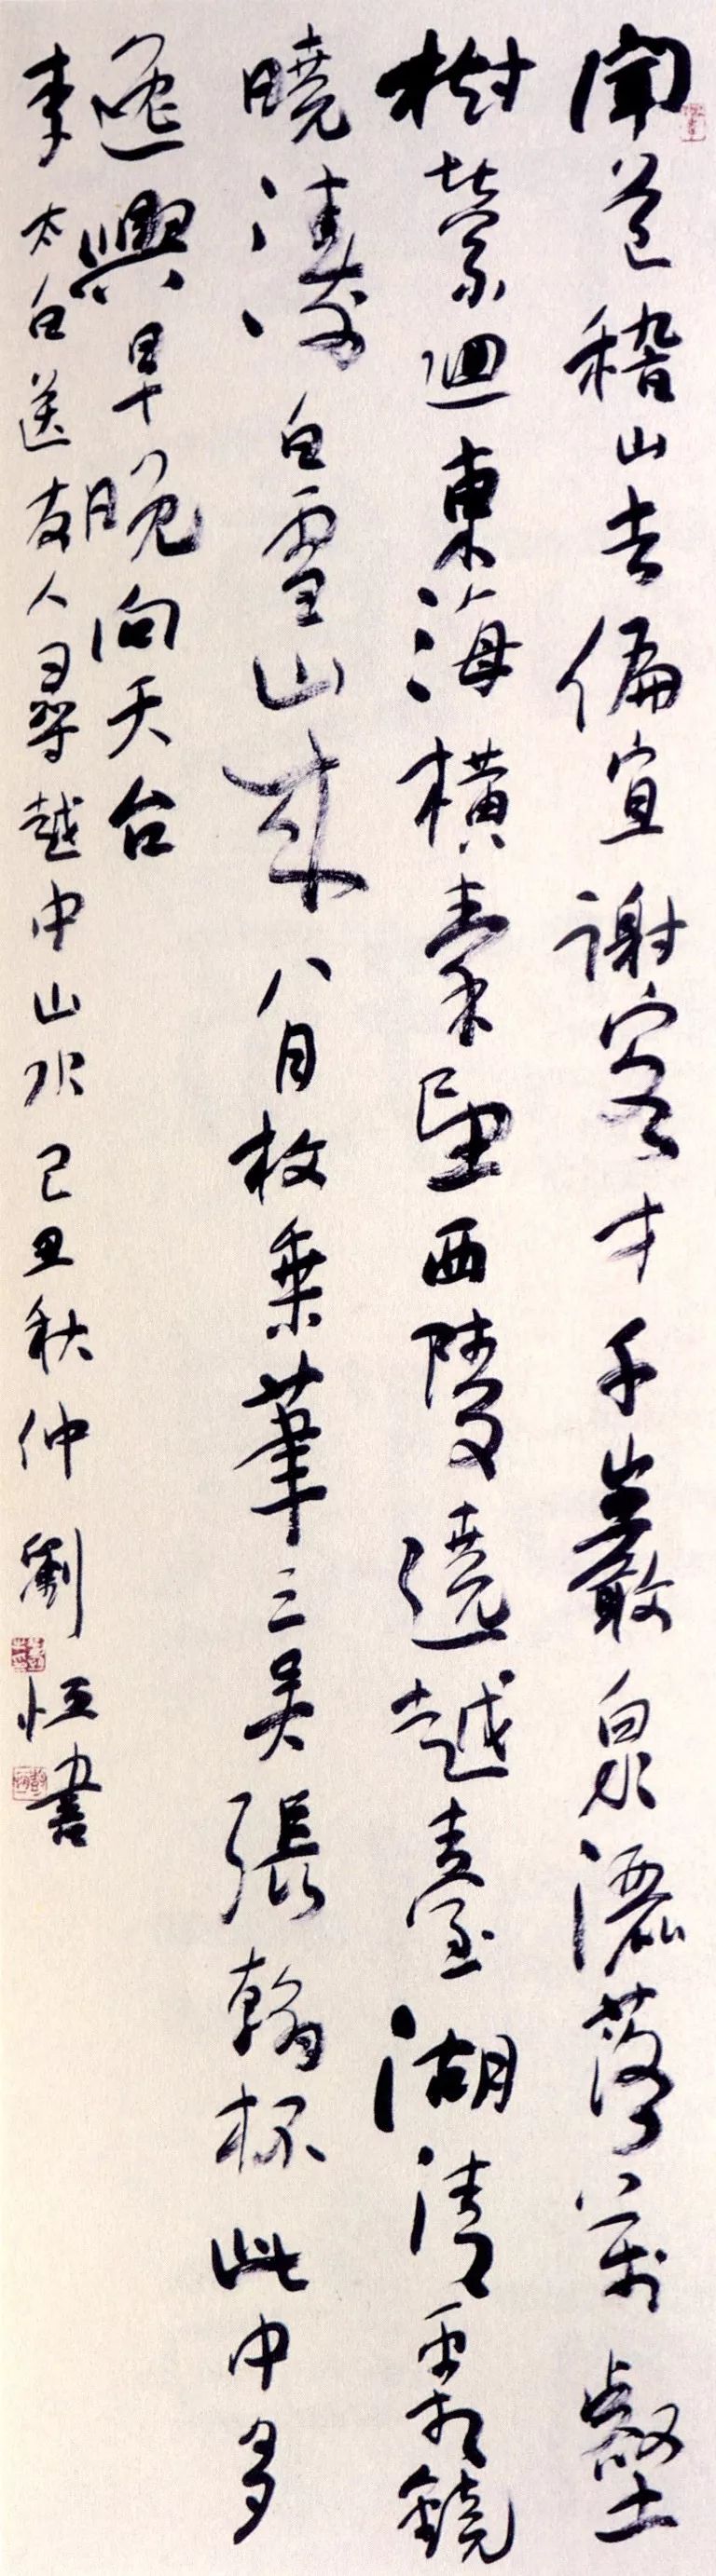 聞道稽山去偏宜謝客才千巖泉灑落萬壑
樹縈迴東海橫秦望西陵遶越臺湖清霜鏡
曉濤白雪山來八月枚乗筆三吳張翰杯此中多
逸興早晚向天台
李太白送友人尋越中山水己丑秋仲劉恒書